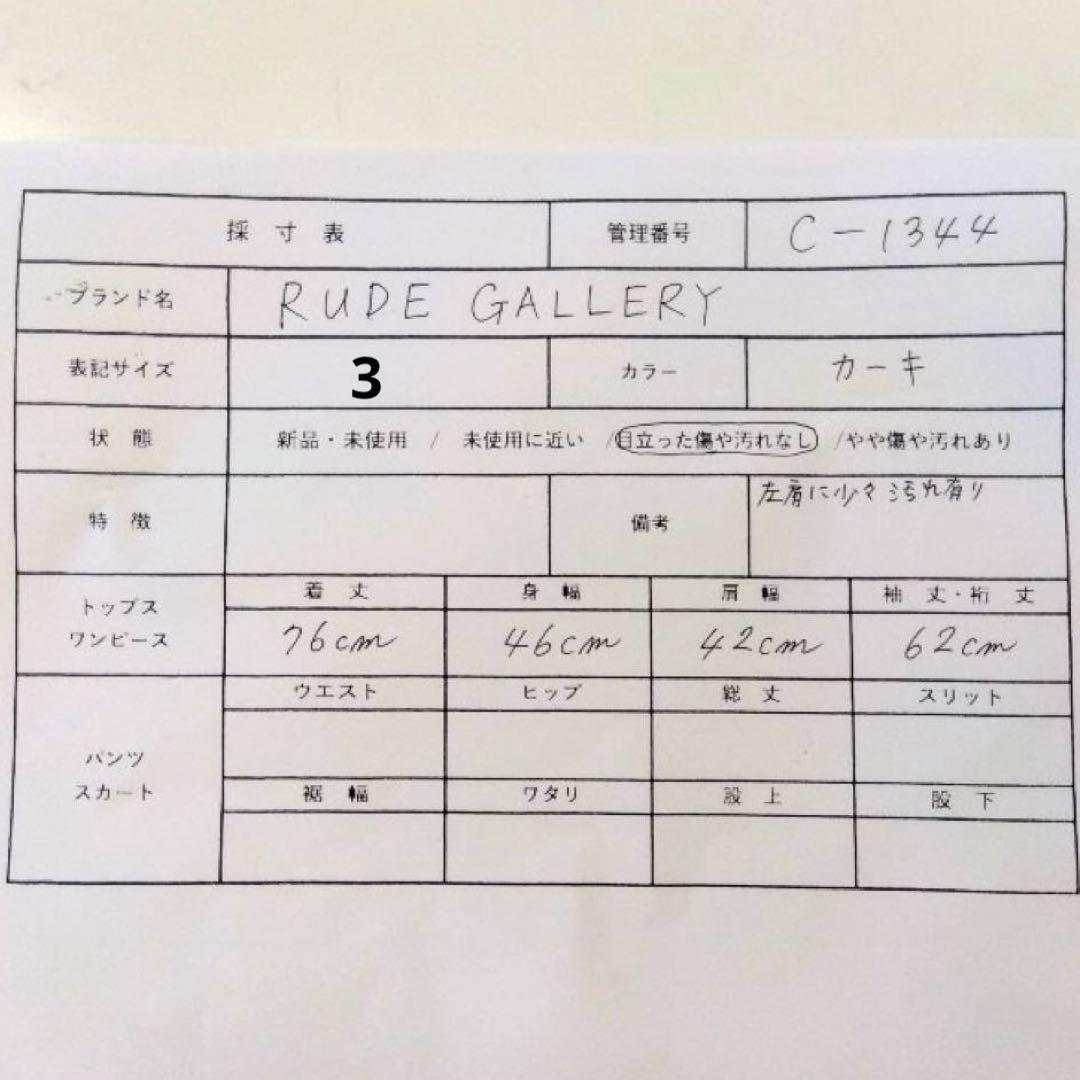 採寸表 管理番号 C-1344
ブランド名 RUDE GALLERY
表記サイズ 3 カラー カーキ
状態 新品・未使用 / 未使用に近い / 目立った傷や汚れなし / やや傷や汚れあり
特徴 備考 左肩に少々汚れ有り
トップス
ワンピース
着丈 身幅 肩幅 袖丈・裄丈
76cm 46cm 42cm 62cm
パンツ
スカート
ウエスト ヒップ 総丈 スリット
裾幅 ワタリ 股上 股下